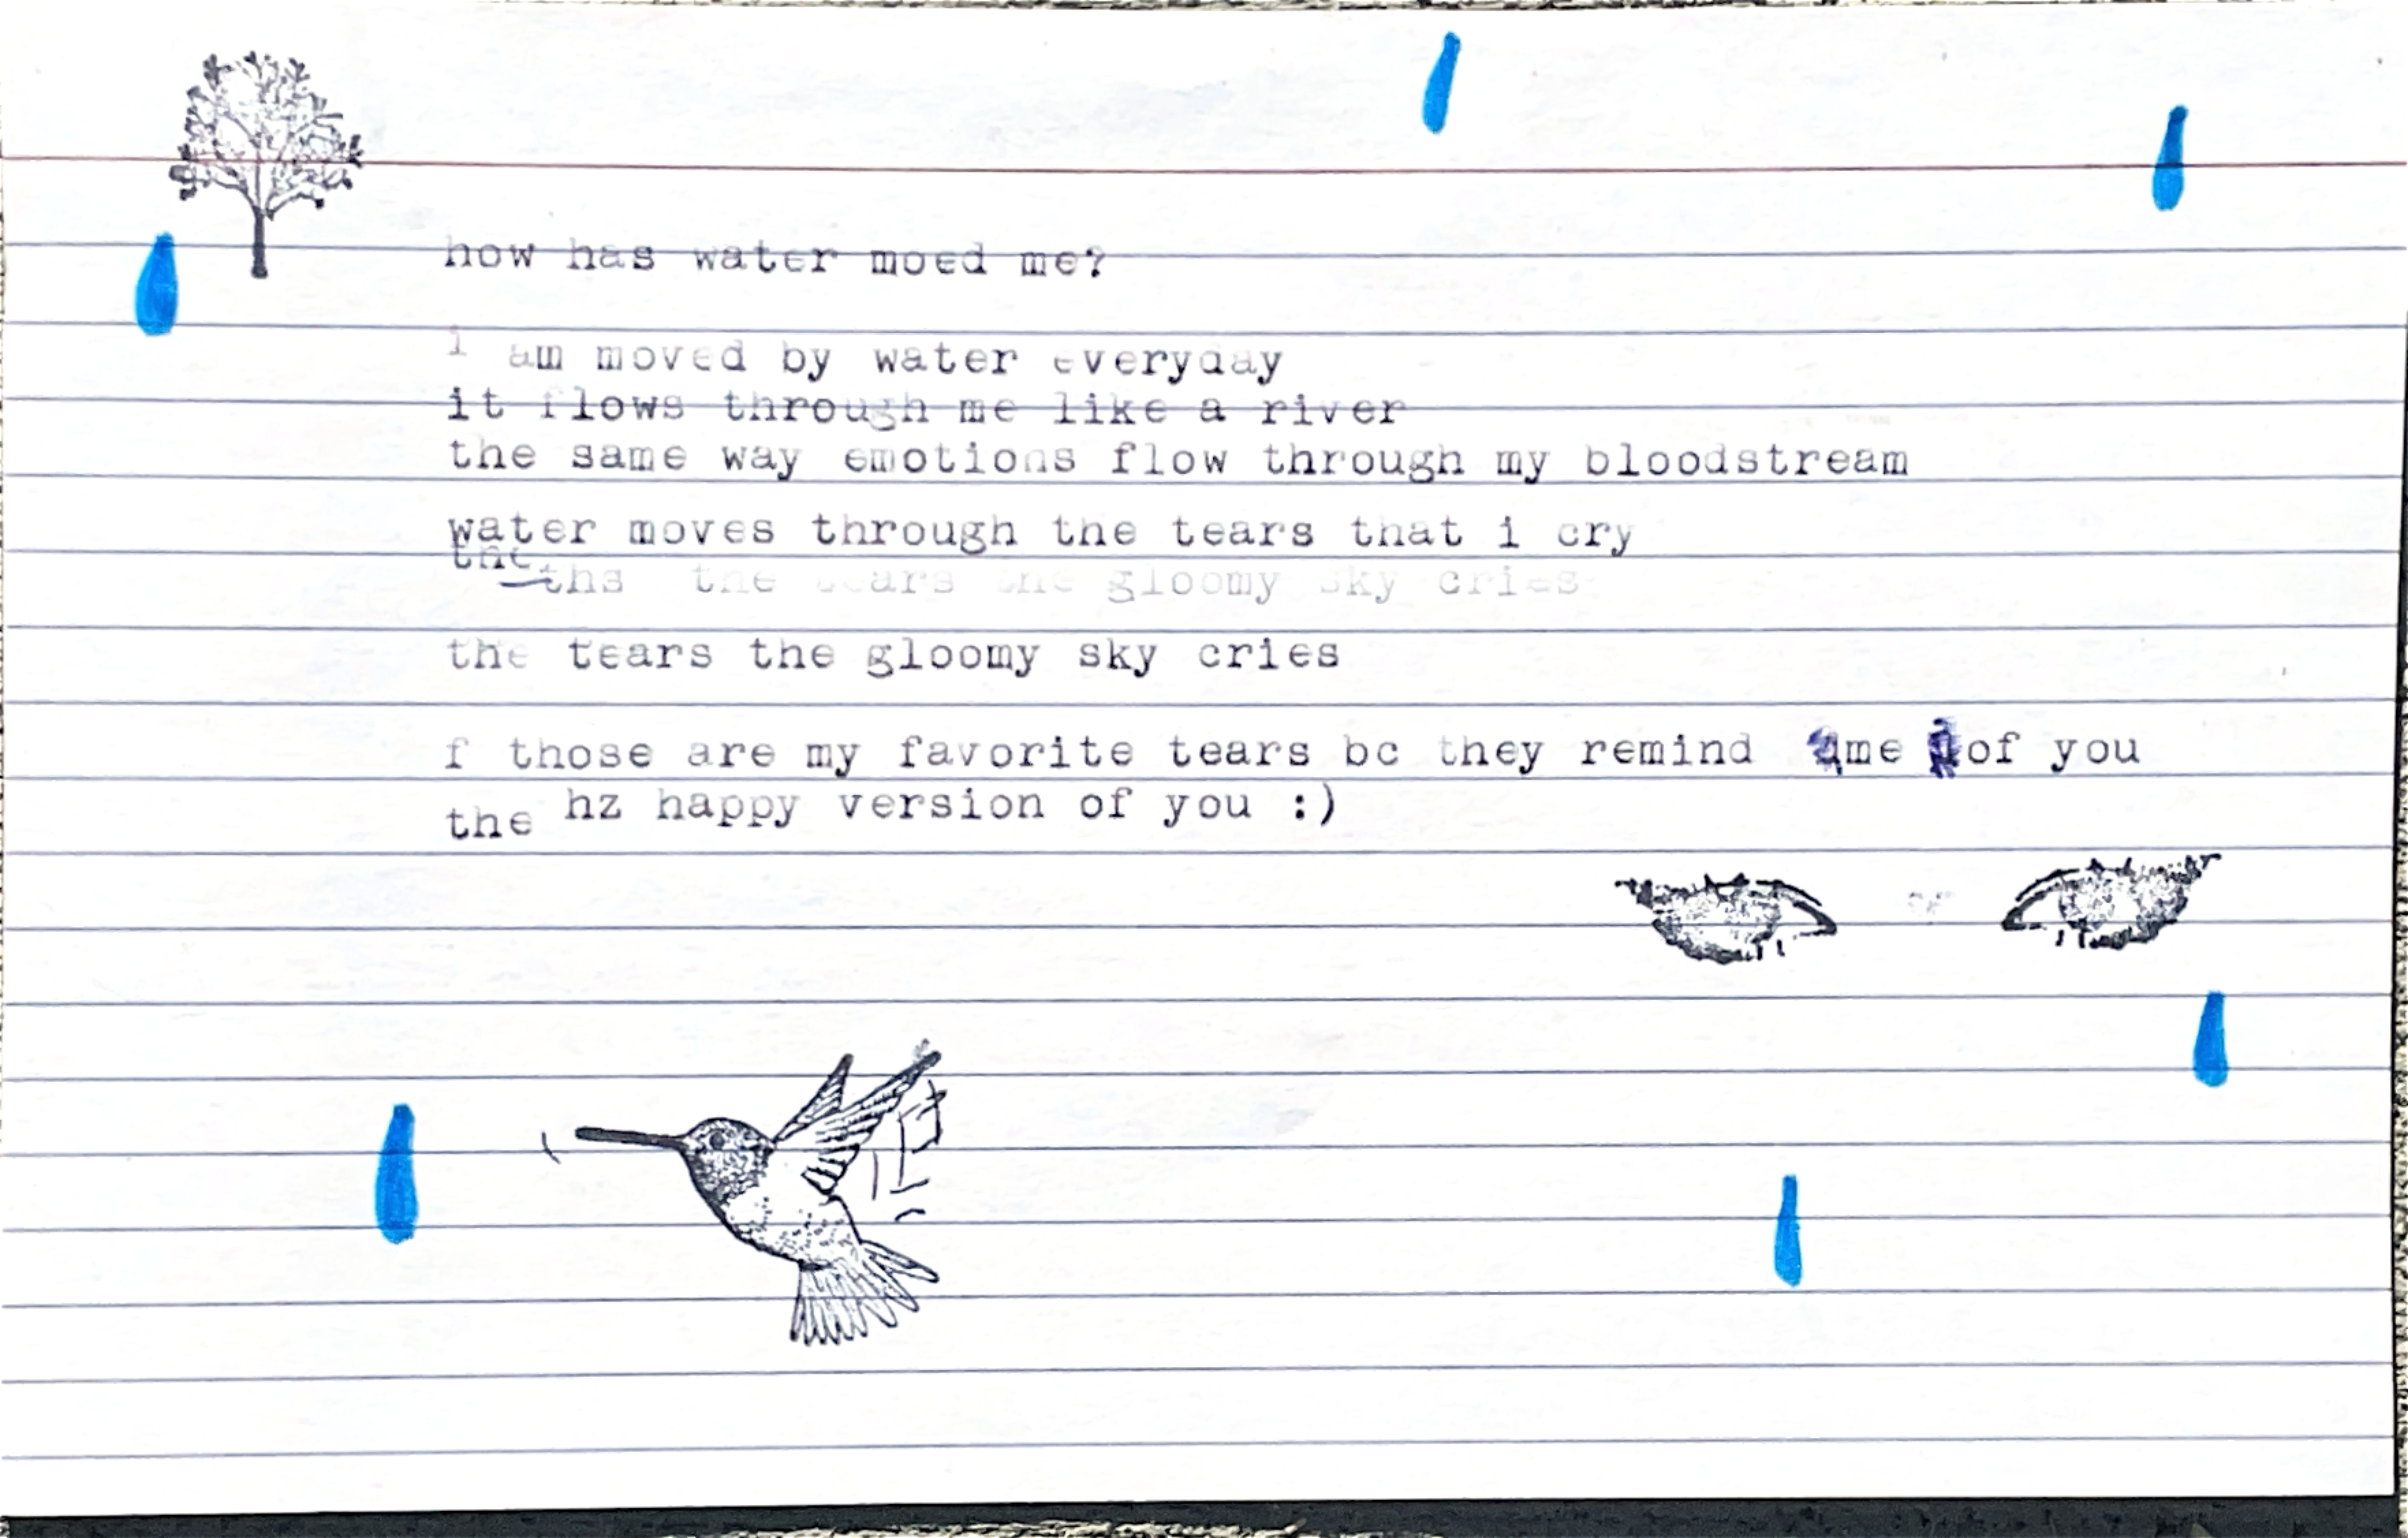 how has water moed me?
i am moved by water everyday
it flows through me like a river
the same way emotions flow through my bloodstream
water moves through the tears that i cry
the
ths the tears the gloomy sky cries
the tears the gloomy sky cries
f those are my favorite tears bc they remind me of you
the hz happy version of you :)